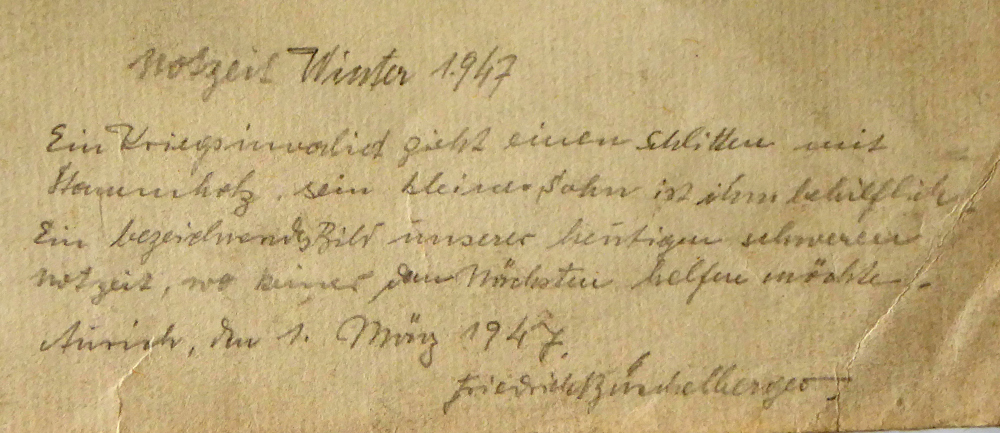 Notzeit Winter 1947
Ein Kriegsinvalid zieht einen Schlitten mit
Stammholz, sein kleiner Sohn ist ihm behilflich.
Ein bezeichnendes Bild unserer heutigen schweren
Notzeit, wo keiner dem Nächsten helfen möchte.
Aurich, den 1. März 1947.
Friedrich Büschelberger